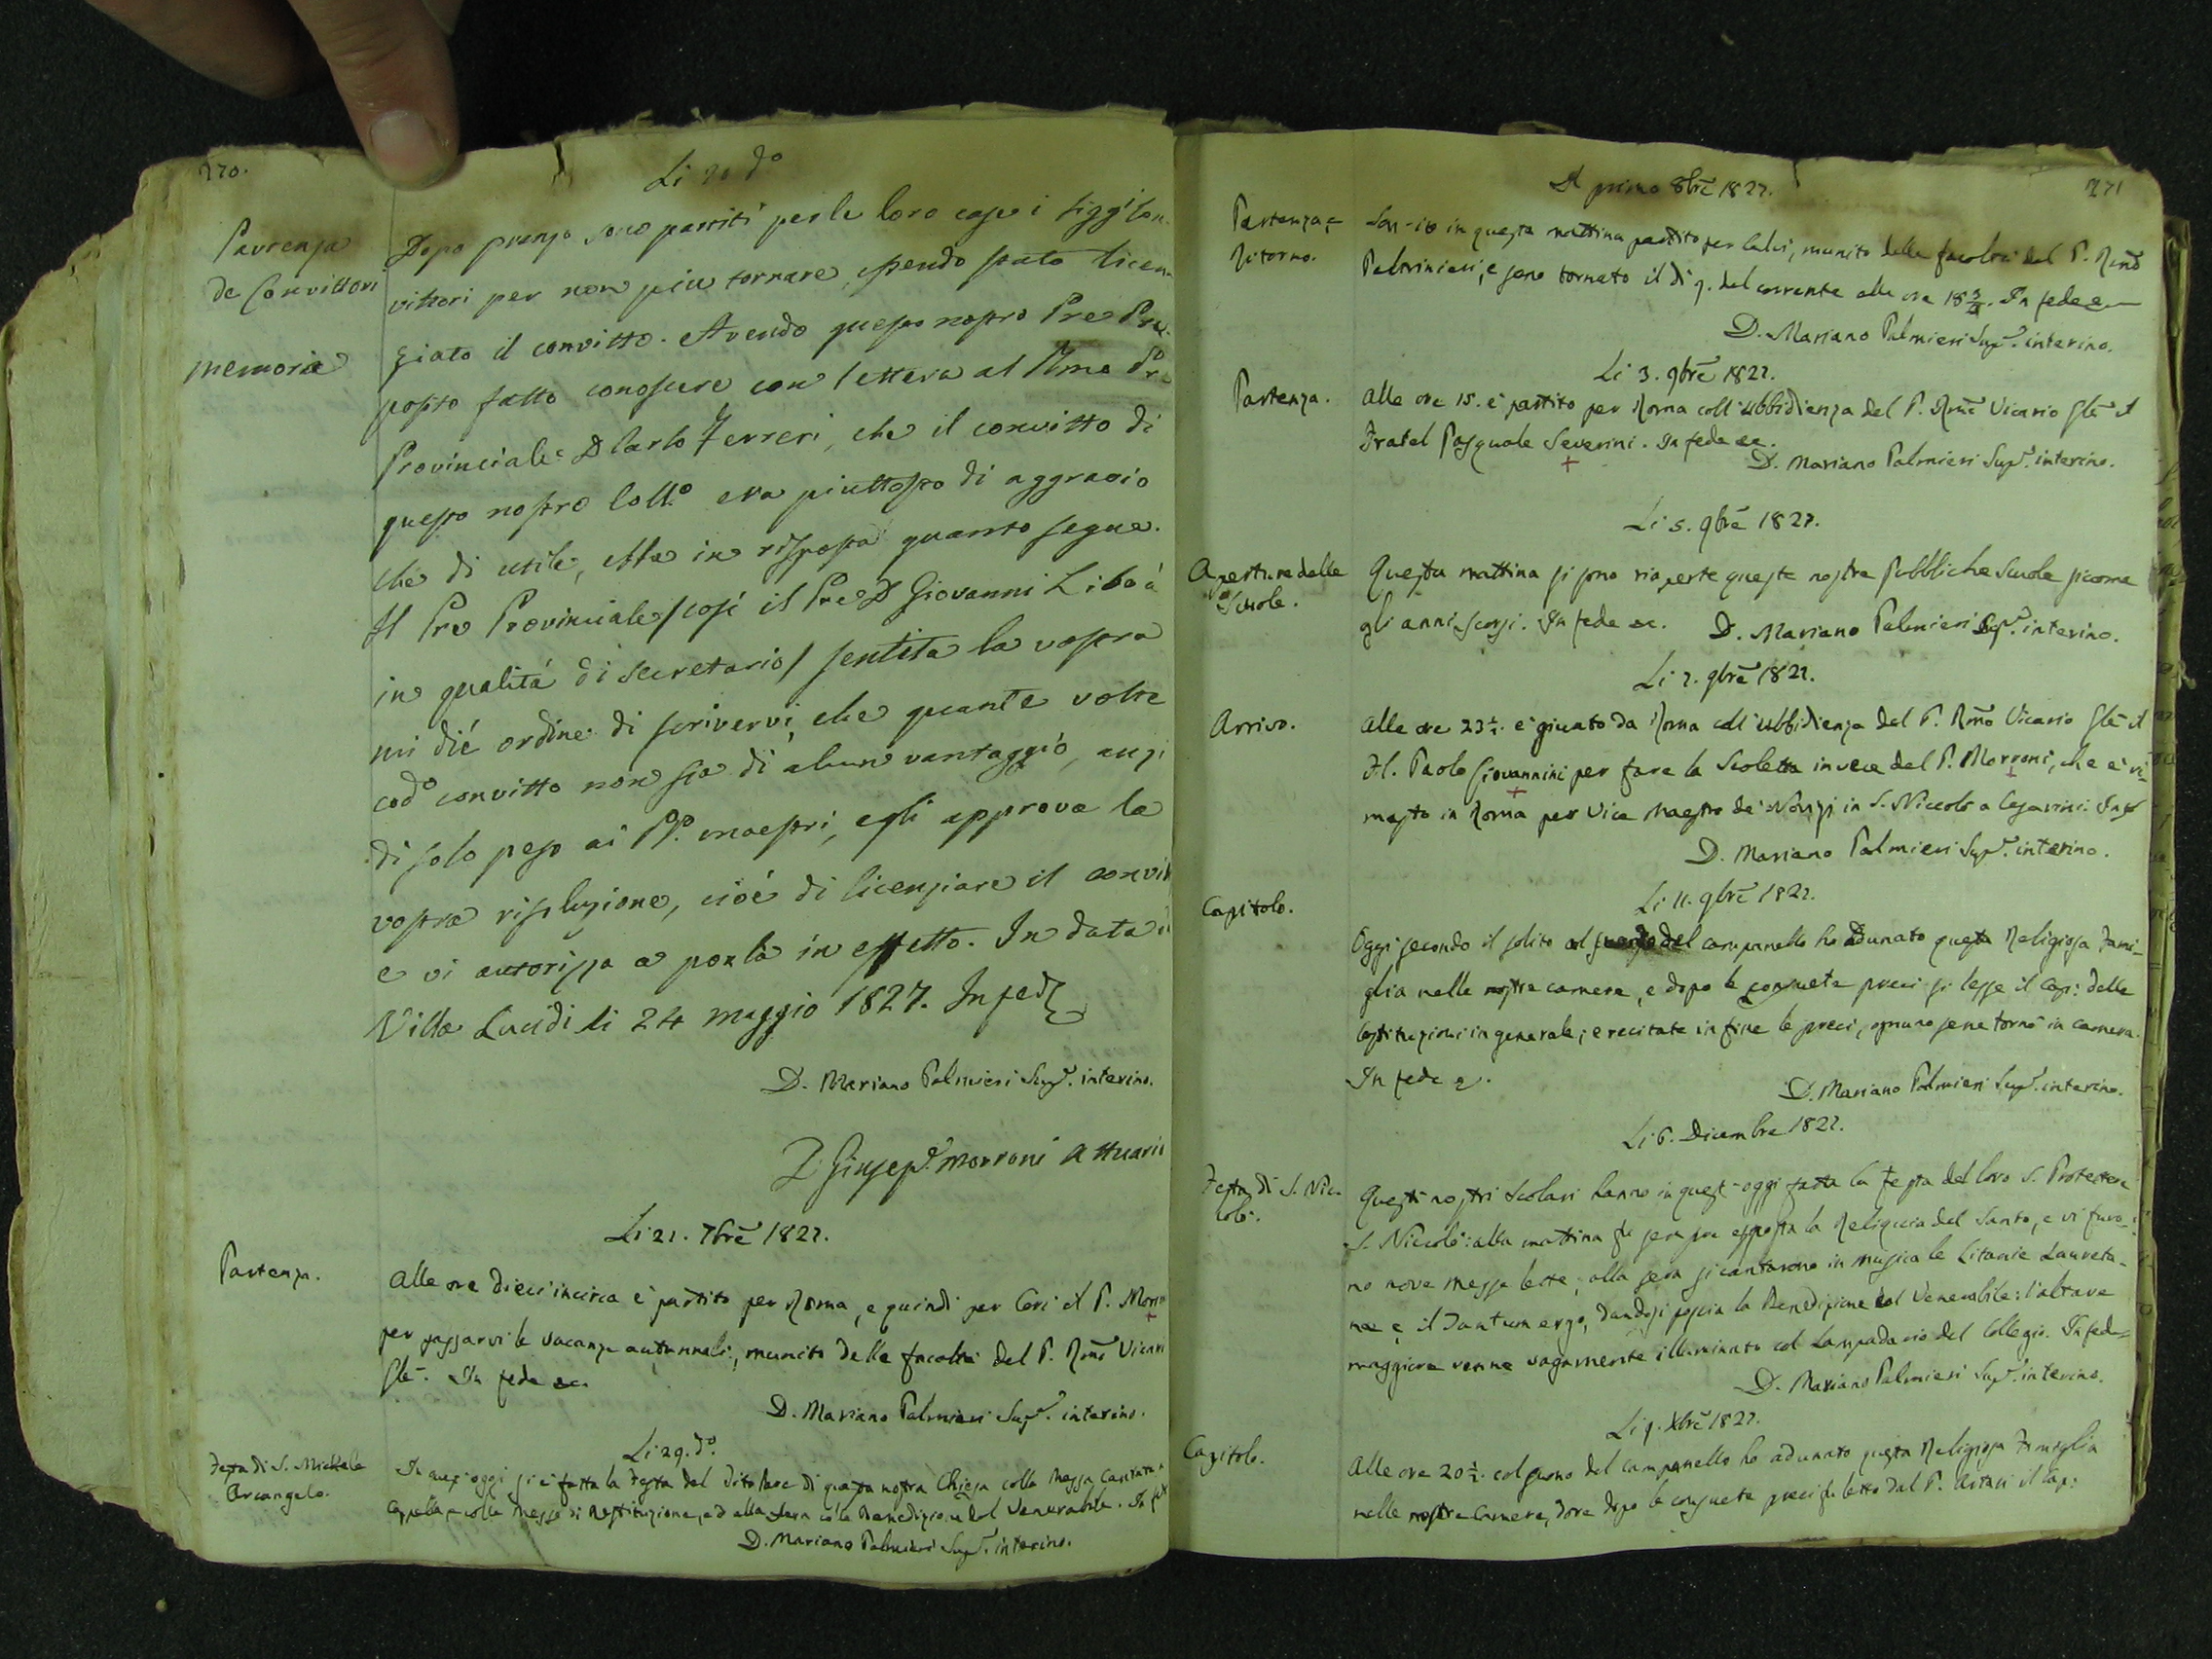 270.
Li 20 do
Partenza
de Convittori
Dopo pranzo sono partiti per le loro case i Sigg.i Con-
vittori per non piu tornare, essendo stato licen-
memoria
ziato il convitto. Avendo questo nostro Pre Pre-
posto fatto conoscere con lettera al Rmo Pre
Provinciale D Carlo Ferreri, che il convitto di
questo nostro Collo. era piuttosto di aggravio
che di utile, ebbe in risposta quanto segue.
Il Pre Provinciale / così il Pre D Giovanni Liboà
in qualitá di secretario / sentita la vostra
mi dié ordine di scrivervi, che quante volte
codo convitto non sia di alcun vantaggio, anzi
di solo peso ai PP. maestri, egli approva la
vostra risoluzione, cioé di licenziare il convit
e vi autorizza a porla in effetto. In data
Villa Lucidi li 24 maggio 1827. In fede
D. Mariano Palmieri Supe. interino.
D Giusepe. Morroni Attuario
Li 21. 7bre 1827.
Partenza.
Alle ore dieci incirca è partito per Roma, e quindi per Ceri il P. Morro
per passarvi le vacanze autunnali, munito delle facoltà del P. Rmo Vicari
Gle. In fede ec.
D. Mariano Palmieri Supe. interino.
Li 29. do.
Festa di S. Michele
Arcangelo.
In quest'oggi si è fatta la Festa del Titolare di questa nostra Chiesa colla Messa Cantata
Cappella, e colle Messe di Restituzione, ed alla sera colla Benedizione del Venerabile. In fe
D. Mariano Palmieri Supe. interino.
271
Il primo 8bre 1827.
Partenza, e
Ritorno.
Son-io in questa mattina partito per Calvi, munito delle facoltà del P. Rmo
Paltrinieri, e sono tornato il dì 9. del corrente alle ore 18 3/4. In fede e
D. Mariano Palmieri Supe. interino.
Li 3. 9bre 1827.
Partenza.
Alle ore 15. è partito per Roma coll'ubbidienza del P. Rmo Vicario Gle il
Fratel Pasquale Severini. In fede ec.
D. Mariano Palmieri Supe. interino.
Li 5. 9bre 1827.
Apertura delle
Scuole.
Questa mattina si sono riaperte queste nostre pubbliche Scuole sicome
gli anni scorsi. In fede ec.
D. Mariano Palmieri Supe. interino.
Li 7. 9bre 1827.
Arrivo.
Alle ore 23 1/2. è giunto da Roma coll'ubbidienza del P. Rmo Vicario Gle il
Fl. Paolo Giovannini per fare la Scoletta invece del P. Morroni, che è ri-
masto in Roma per Vice Maestro de' Novizi in S. Niccolò a Cesarini. In f
D. Mariano Palmieri Supe. interino.
Li 11. 9bre 1827.
Capitolo.
Oggi secondo il solito al suono del campanello ho adunato questa Religiosa Fami-
glia nelle nostre camere, e dopo le consuete preci si lesse il Cap: delle
Costituzioni in generale; e recitate in fine le preci, ognuno se ne tornò in camera.
In fede e.
D. Mariano Palmieri Supe. interino.
Li 6. Dicembre 1827.
Festa di S. Nic-
colò.
Questi nostri Scolari hanno in quest-oggi fatta la Festa del loro S. Protettore
S. Niccolò: alla mattina fu sempre esposta la Reliquia del Santo, e vi furo-
no nove messe lette; alla sera si cantarono in musica le Litanie Laureta-
ne e il Tantum ergo, dandosi poscia la Benedizione col Venerabile: l'altare
maggiore venne vagamente illuminato col Lampadario del Collegio. In fede
D. Mariano Palmieri Supe. interino.
Li 9. Xbre 1827.
Capitolo.
Alle ore 20 1/2. col suono del campanello ho adunato questa Religiosa Famiglia
nelle nostre Camere, dove dopo le consuete preci fu letto dal P. il Cap: